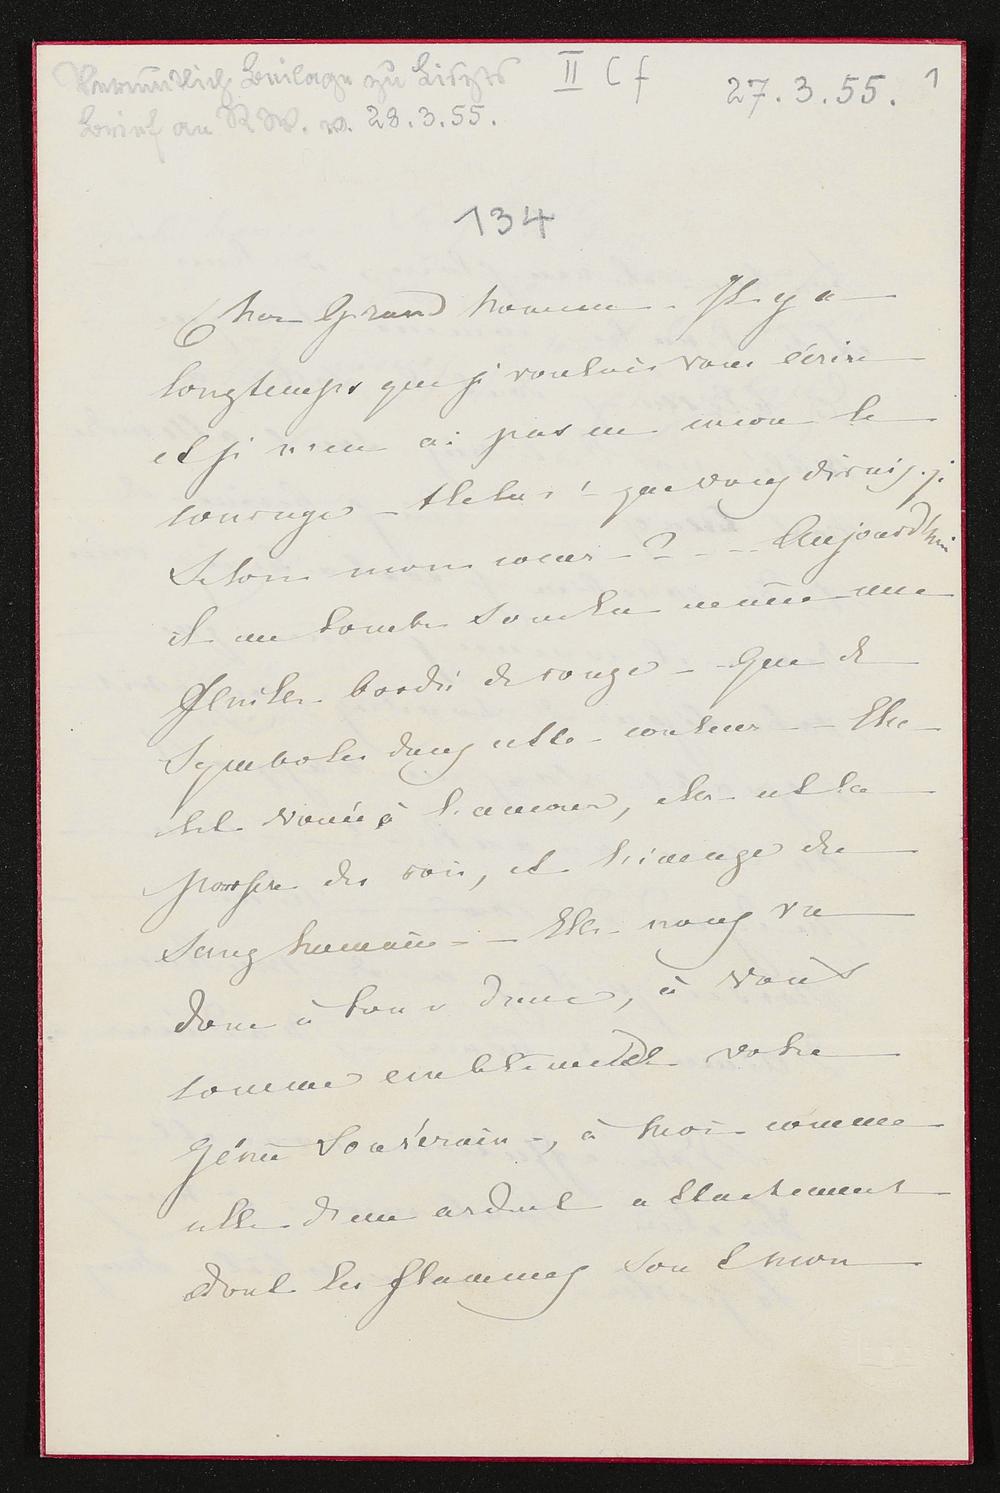 Vermutlich Beilage zu Liszts II C f 27.3.55. 1
Brief an R W. v. 28.3.55.
134
Cher Grand homme – Il y a
longtemps que je voulais vous écrire
et je n'en ai pas eu encore le
courage – Hélas! – que vous dirais-je
selon mon cœur –? – – Aujourd'hui
il me tombe sous la main une
feuille bordée de rouge – Que de
symboles dans cette couleur – – Elle
est vouée à l'amour, elle est la
pourpre des rois, et l'image du
sang humain – – Elle nous va
donc à tous deux, à vous
comme emblème de votre
Génie Souverain –, à moi comme
celle d'un ardent attachement
dont les flammes sont mon